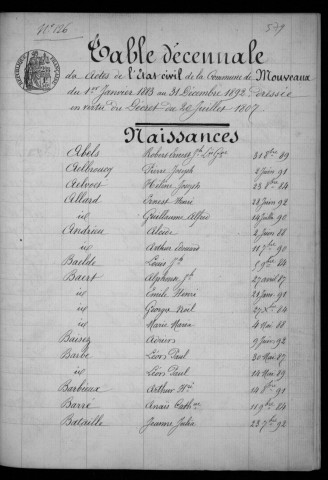 N° 126
579
Table décennale
des Actes de l'état civil de la Commune de Mouveaux
du 1er Janvier 1883 au 31 Décembre 1892 dressée
en vertu du Décret du 20 Juillet 1807
Naissances
Abels Robert Ernest Jh 31 8bre 89
Pierre Joseph 2 Juin 91
Hélène Joseph 23 8bre 84
Allard Ernest Henri 28 Juin 92
id Guillaume Alfred 14 Juillet 90
Andrieu Alcide 2 Juin 88
id Arthur 11 7bre 90
Baelde Louis Jh 5 9bre 84
Baert Alphonse Jh 27 avril 87
id Emile Henri 21 Janv 91
id Georges Noël 27 Xbre 84
id Marie Maria 4 Mai 88
Baisez Adrien 9 Juin 92
Barbe Léon Paul 30 Mai 87
id Léon Paul 14 Mai 89
Barbieux Arthur 14 8bre 91
Barré Anaïs Cathne 11 9bre 84
Bataille Jeanne Julia 23 7bre 92